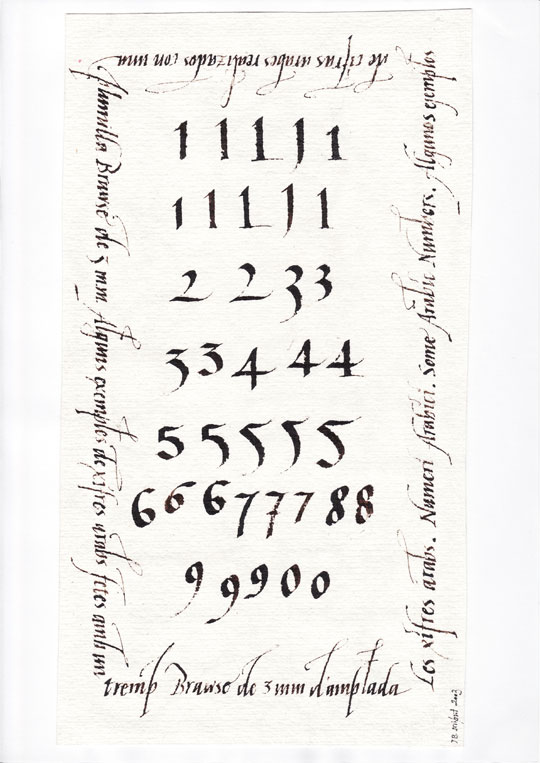 Les xifres arabs. Numeri Arabici. Some Arabic Numbers. Algunos ejemplos
de cifras arabes realizados con una
plumilla Brause de 3 mm. Alguns exemples de xifres arabs fetes amb un
tremp Brause de 3 mm d'amplada
1 1 1 1 1
1 1 1 1 1
2 2 3 3
3 3 4 4 4
5 5 5 5 5
6 6 6 7 7 7 8 8
9 9 9 0 0